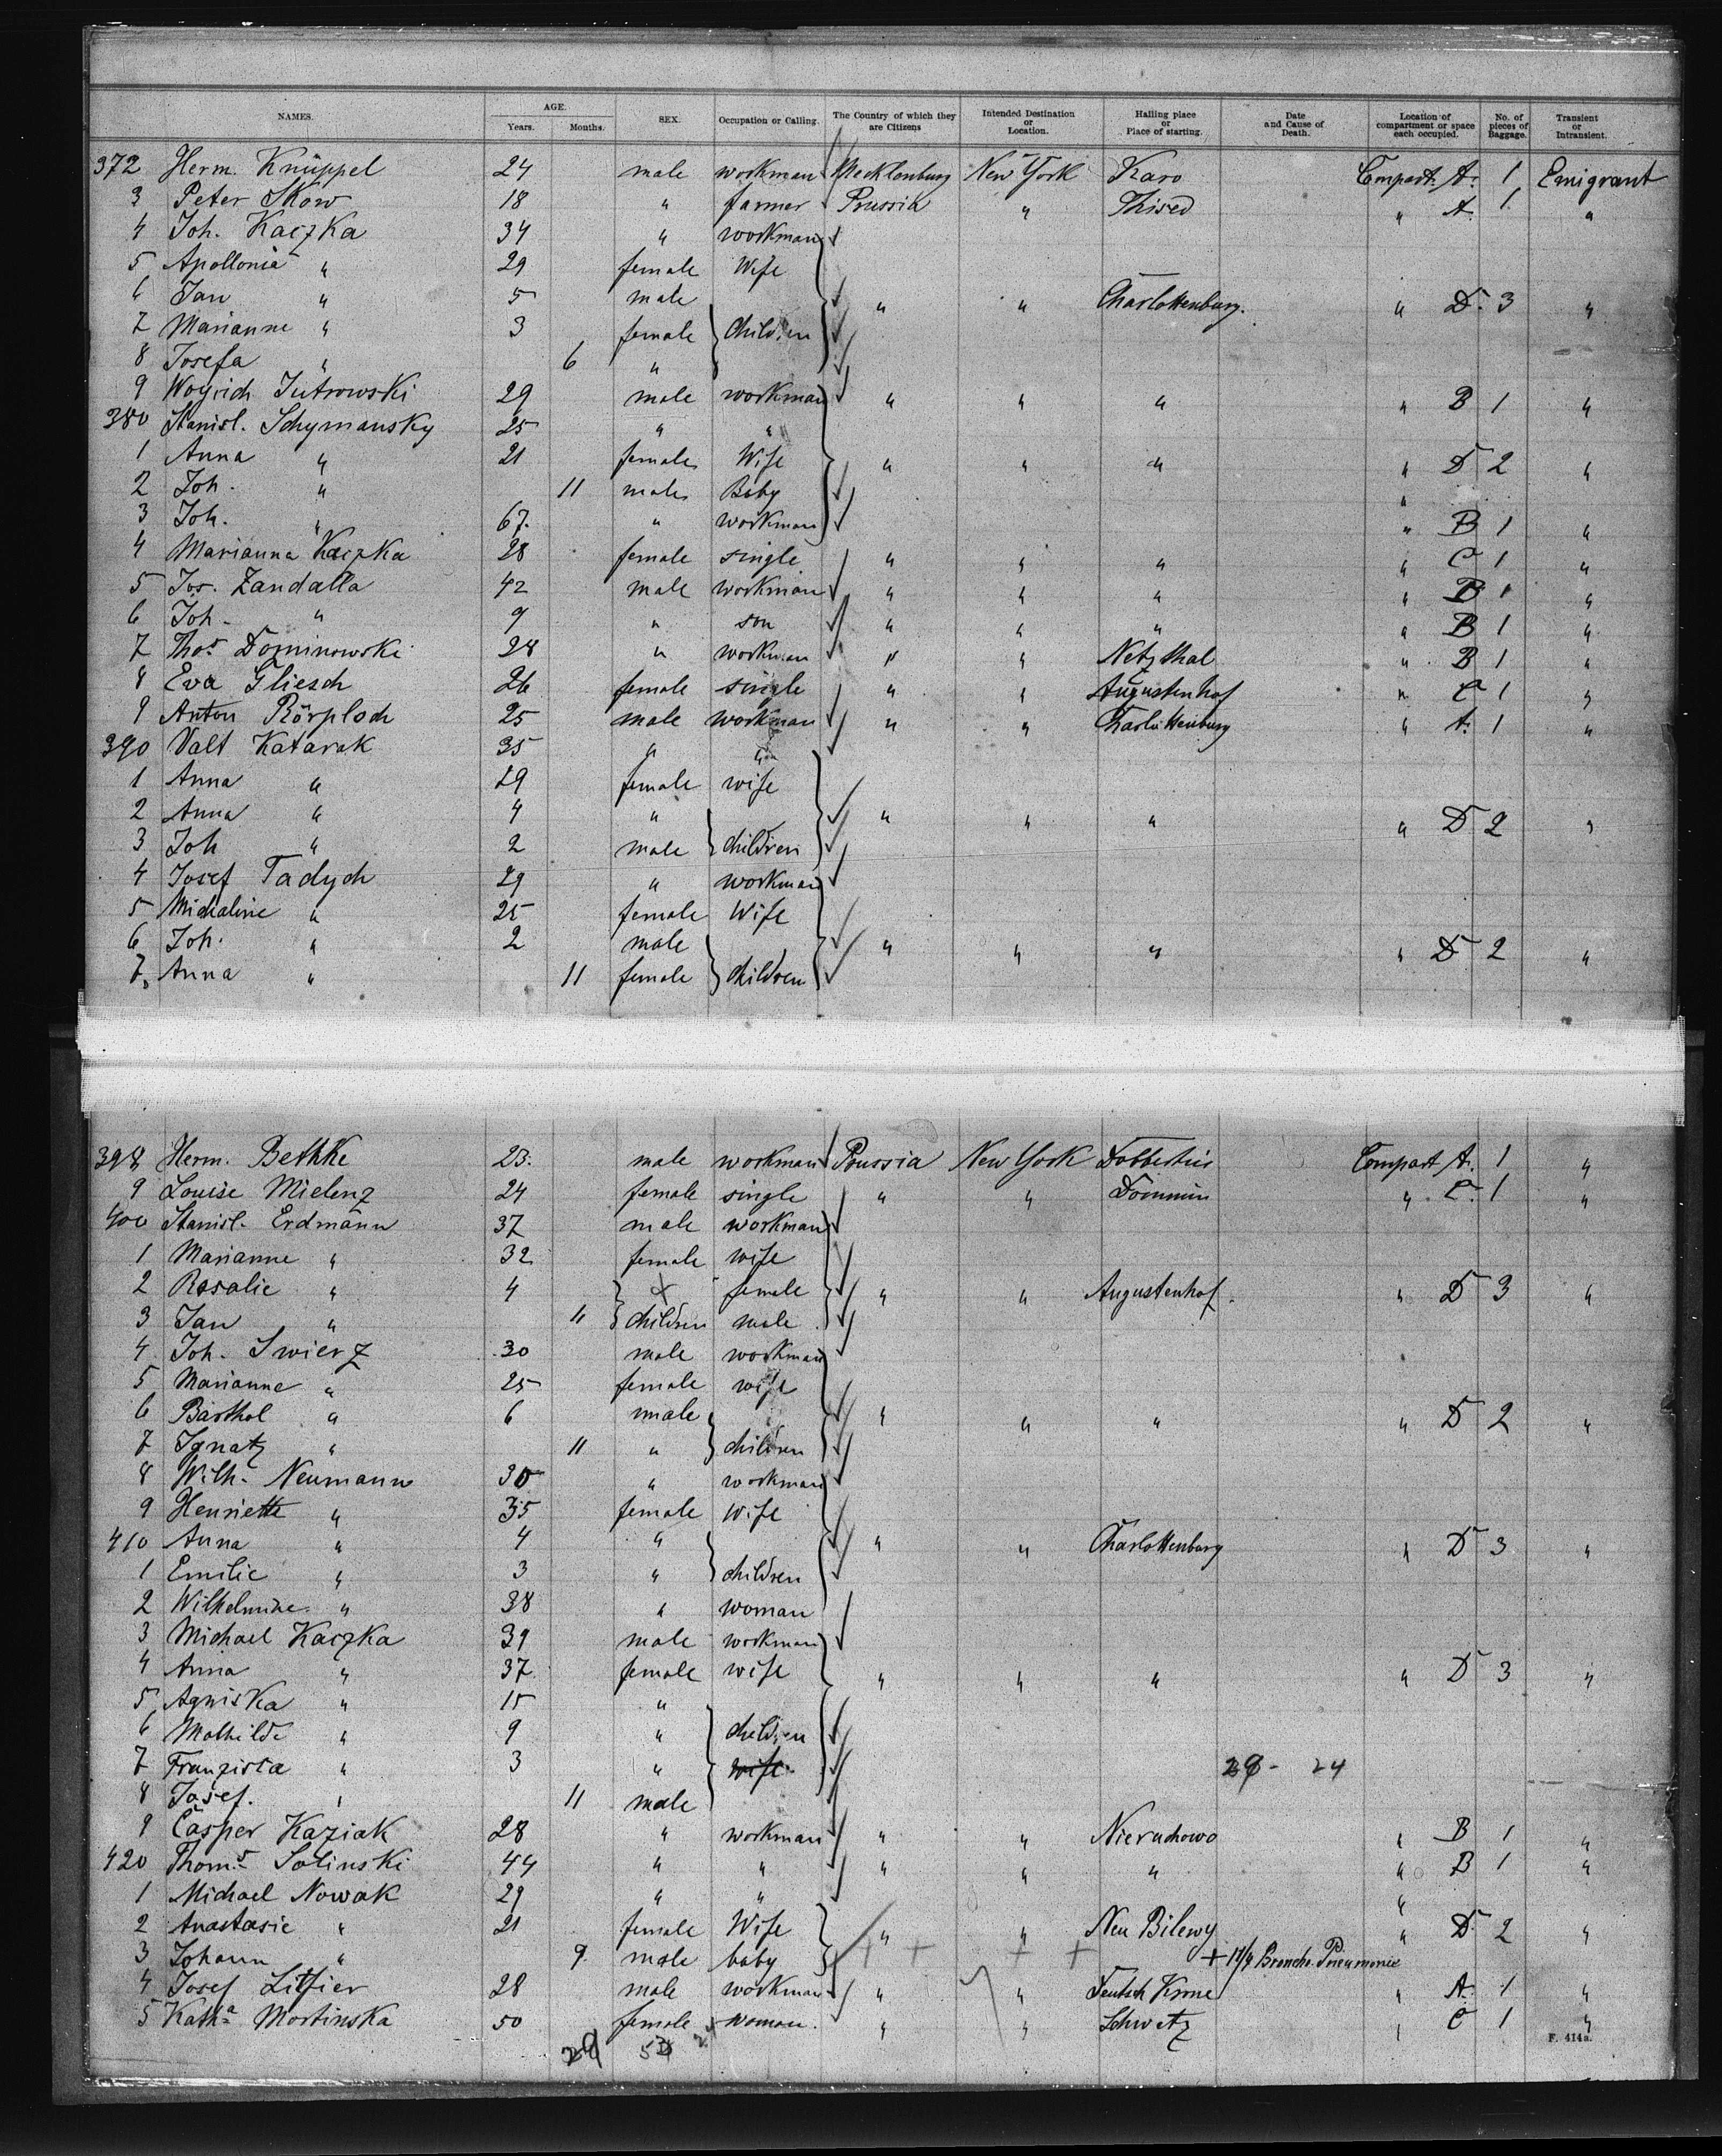 NAMES. AGE. Years. Months. SEX. Occupation or Calling. The Country of which they are Citizens Intended Destination or Location. Hailing place or Place of starting. Date and Cause of Death. Location of compartment or space each occupied. No. of pieces of Baggage. Transient or Intransient.
372 Herm. Knüppel 24 male workman Mecklenburg New York Karo Compart. A. 1 Emigrant
3 Peter Skow 18 " farmer Prussia " Thised " A. 1 "
4 Joh. Kaczka 34 " workman
5 Apollonia " 29 female Wife
6 Jan " 5 male " " Charlottenburg. " D. 3 "
7 Marianne " 3 female children
8 Josefa " 6 "
9 Woyrich Jutrowski 29 male workman " " " " B 1 "
380 Stanisl. Schymansky 25 " "
1 Anna " 21 female Wife " " " " D 2 "
2 Joh. " 11 male Baby "
3 Joh. " 67. " workman " B 1 "
4 Marianna Kaczka 28 female single " " " " C 1 "
5 Jos. Zandalla 42 male workman " " " " B 1 "
6 Joh. " 9 " son " " " " B 1 "
7 Thos. Dominowski 28 " workman " " Netzthal " B 1 "
8 Eva Gliesch 26 female single " " Augustenhof " C 1 "
9 Anton Rörploch 25 male workman " " Charlottenburg " A. 1 "
390 Valt Katarak 35 " "
1 Anna " 29 female wife
2 Anna " 4 " " " " " D 2 "
3 Joh " 2 male children
4 Josef Tadych 29 " workman
5 Michaline " 25 female Wife
6 Joh. " 2 male " " " " D 2 "
7. Anna " 11 female children
398 Herm. Bethke 23. male workman Prussia New York Compart A. 1 "
9 Louise Mielenz 24 female single " " Dommin " C. 1 "
400 Stanisl. Erdmann 37 male workman
1 Marianne " 32 female wife
2 Rosalie " 4 female " " Augustenhof. " D 3 "
3 Jan " 11 children male
4 Joh. Swierz 30 male workman
5 Marianne " 25 female wife
6 Barthol " 6 male " " " " D 2 "
7 Ignatz " 11 " children
8 Wilh. Neumann 30 " workman
9 Henriette " 35 female Wife
410 Anna " 4 " " " Charlottenburg " D 3 "
1 Emilie " 3 " children
2 Wilhelmine " 38 " woman
3 Michael Kaczka 39 male workman
4 Anna " 37 female wife " " " " D 3 "
5 Agniska " 15 "
6 Mathilde " 9 " children
7 Franziska " 3 " wife 29 - 24
8 Josef. " 11 male
9 Casper Kaziak 28 " workman " " Nieruchowo " B 1 "
420 Thoms. Solinski 44 " " " " " " B 1 "
1 Michael Nowak 29 " " "
2 Anastasie " 21 female Wife " " Neu Bilewy " D. 2 "
3 Johann " 9. male baby + + + + + 17/4 Broncho Pneumonie
4 Josef Litfier 28 male workman " " Deutsch Krone " A. 1 "
5 Katha. Martinska 50 female woman. " " Schwetz " C 1 "
29 53 24
F. 414a.